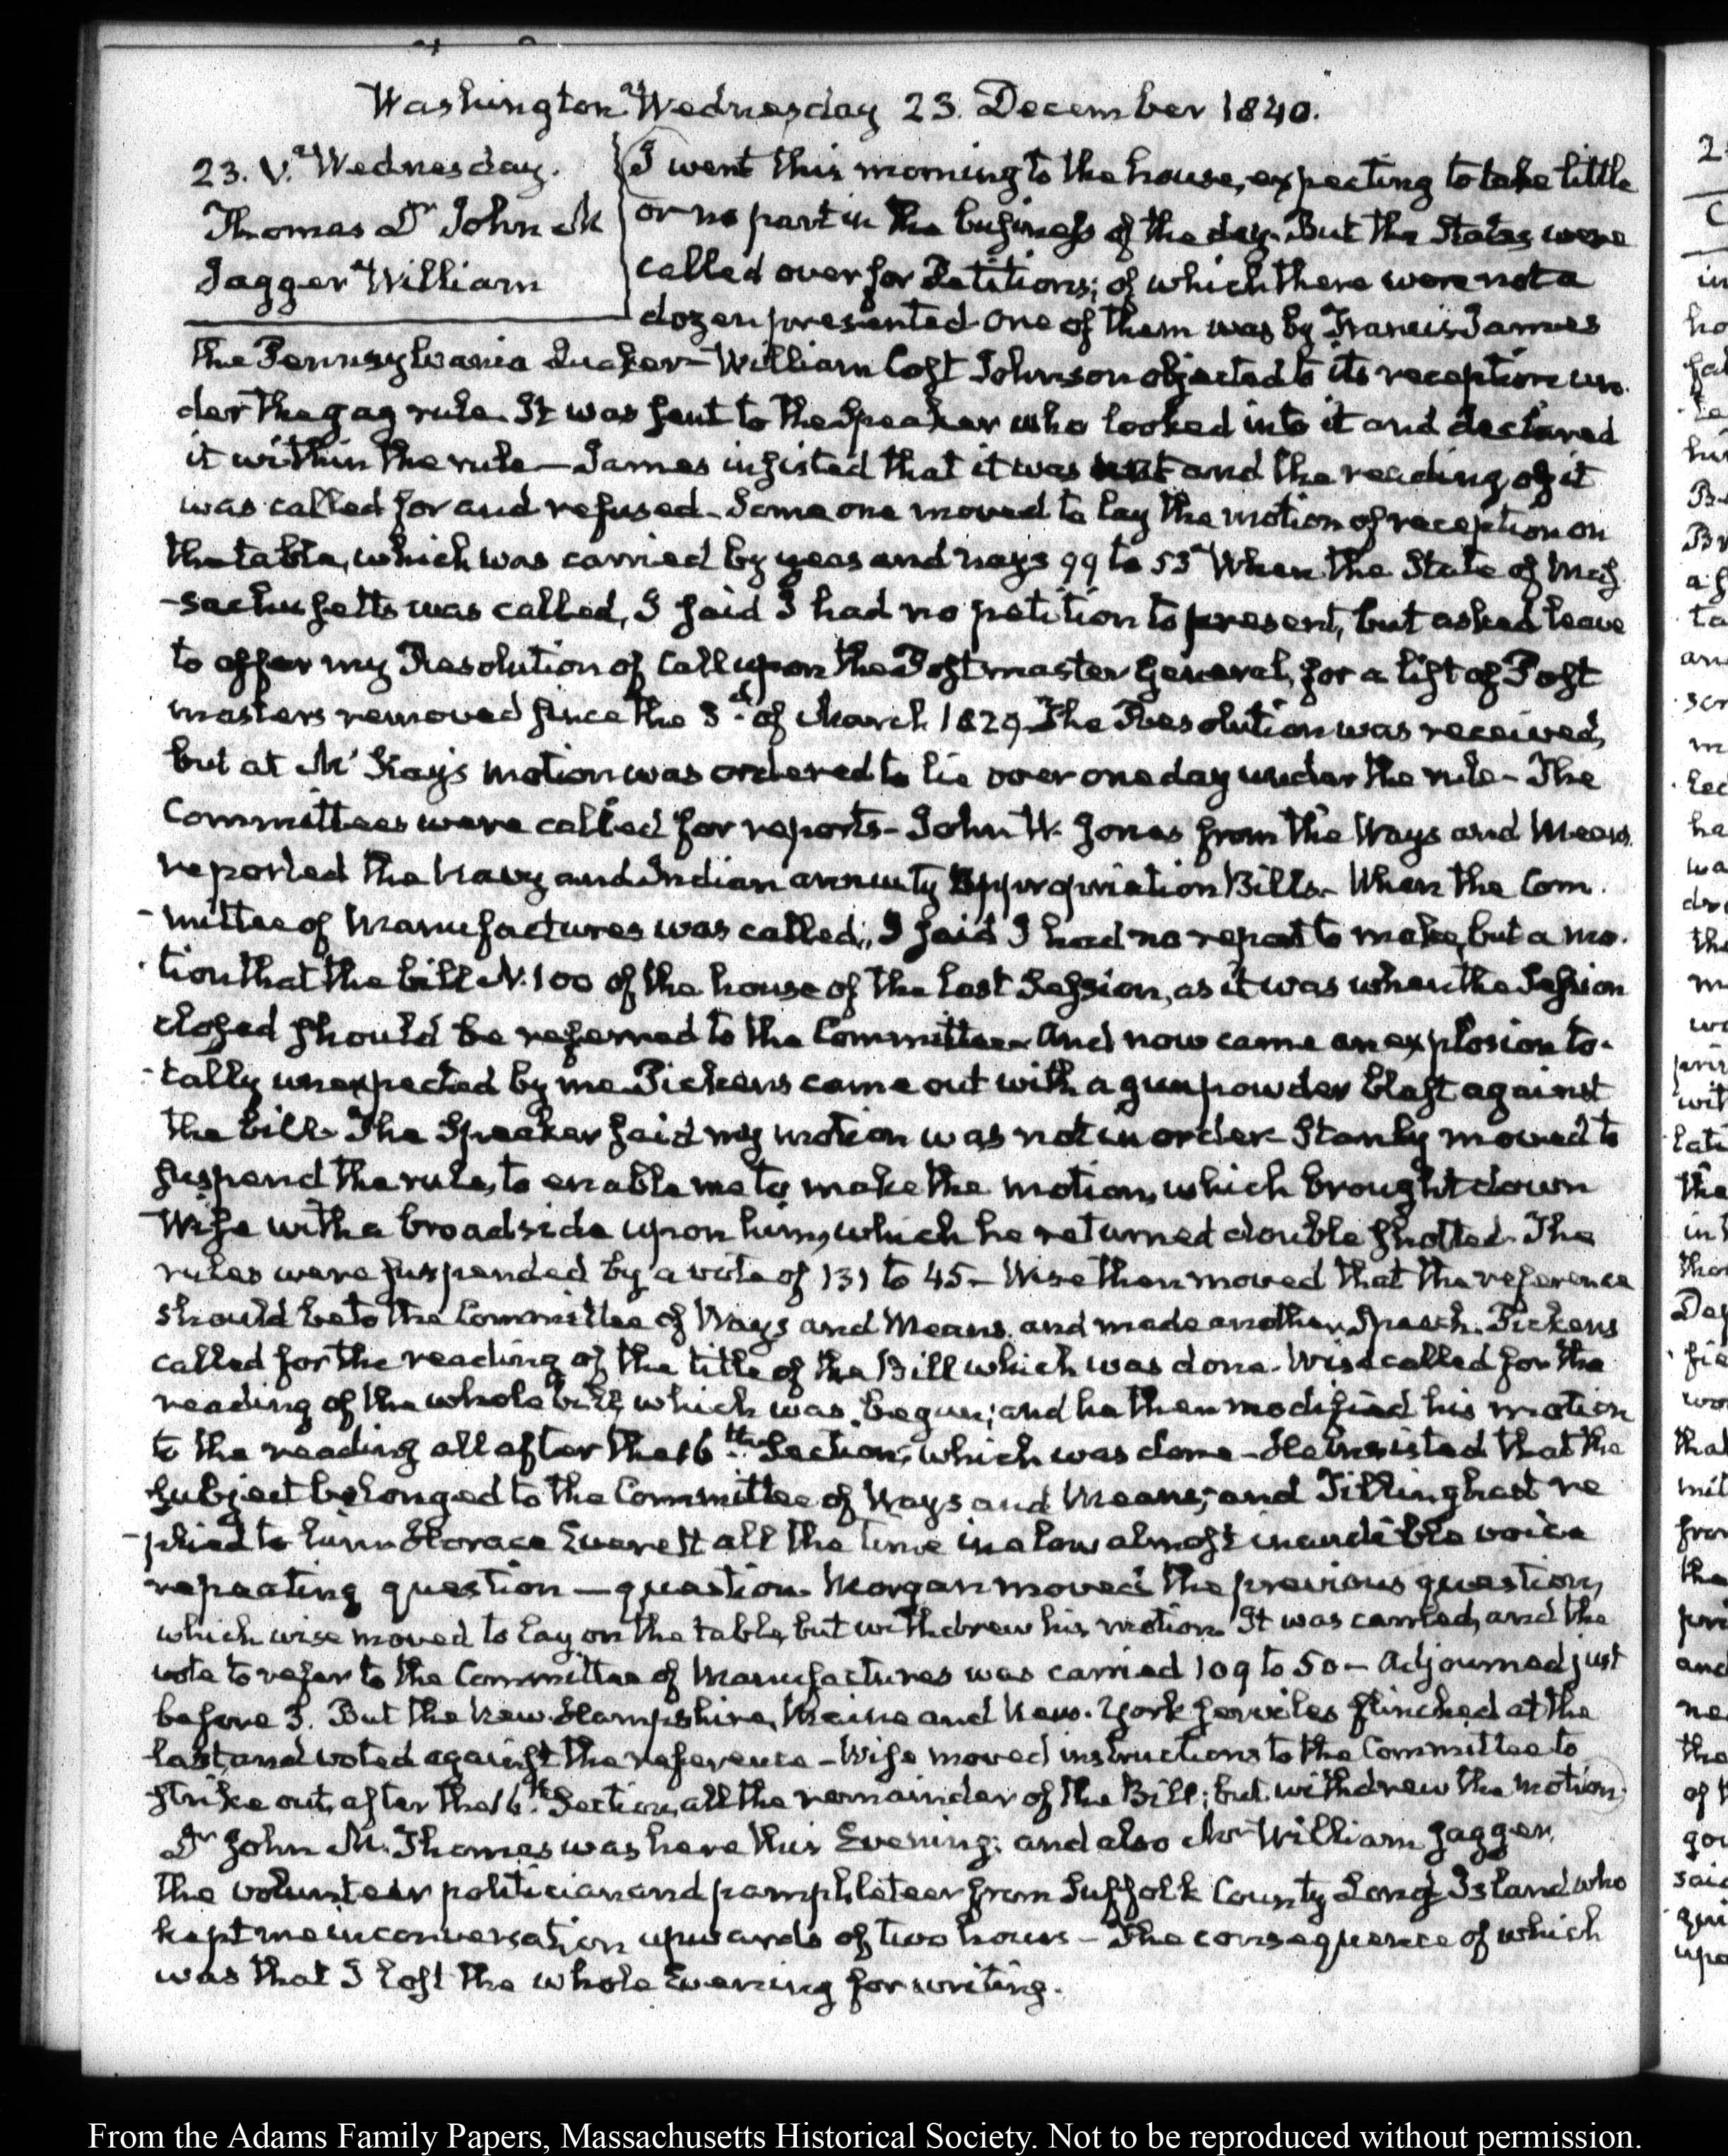 Washington Wednesday 23. December 1840.
23. V. Wednesday.
Thomas Dr John M
Jagger William
I went this morning to the house, expecting to take little
or no part in the business of the day. But the States were
called over for Petitions; of which there were not a
dozen presented. One of them was by Francis James
the Pennsylvania Quaker— William Cost Johnson objected to its reception un-
der the gag rule. It was sent to the Speaker who looked into it and declared
it within the rule— James insisted that it was not and the reading of it
was called for and refused. Some one moved to lay the motion of reception on
the table, which was carried by yeas and nays 99 to 53 When the State of Mas
-sachusetts was called, I said I had no petition to present, but asked leave
to offer my Resolution of Call upon the Postmaster General, for a list of Post
masters removed since the 3.d of March 1829. The Resolution was received,
but at Mc Kay's motion was ordered to lie over one day under the rule— The
Committees were called for reports— John W. Jones from the Ways and Means.
reported the Navy and Indian annuity Appropriation Bills— When the Com.
-mittee of Manufactures was called, I said I had no report to make, but a mo.
-tion that the bill N. 100 of the house of the last Session, as it was when the Session
closed should be referred to the Committee— And now came an explosion to-
-tally unexpected by me. Pickens came out with a gunpowder blast against
the bill. The Speaker said my motion was not in order— Stanly moved to
suspend the rules, to enable me to make the motion, which brought down
Wise with a broadside upon him, which he returned double shotted. The
rules were suspended by a vote of 131 to 45— Wise then moved that the reference
should be to the Committee of Ways and Means. and made another Speech. Pickens
called for the reading of the title of the Bill which was done. Wise called for the
reading of the whole bill, which was begun; and he then modified his motion
to the reading all after the 16.th Section; which was done— He insisted that the
subject belonged to the Committee of Ways and Means; and Tillinghast re
-plied to him. Horace Everett all the time in a low almost inaudible voice
repeating question — question. Morgan moved the previous question,
which wise moved to lay on the table, but withdrew his motion. It was carried, and the
vote to refer to the Committee of Manufactures was carried 109 to 50— Adjourned just
before 3. But the New-Hampshire, Maine and New-York serviles flinched at the
last, and voted against the reference— Wise moved instructions to the Committee to
strike out, after the 16.th Section, all the remainder of the Bill; but withdrew the motion.
Dr John M. Thomas was here this Evening; and also Mr William Jagger,
the volunteer politician and pamphleteer from Suffolk County Long Island who
kept me in conversation upwards of two hours— The consequence of which
was that I lost the whole Evening for writing.
From the Adams Family Papers, Massachusetts Historical Society. Not to be reproduced without permission.